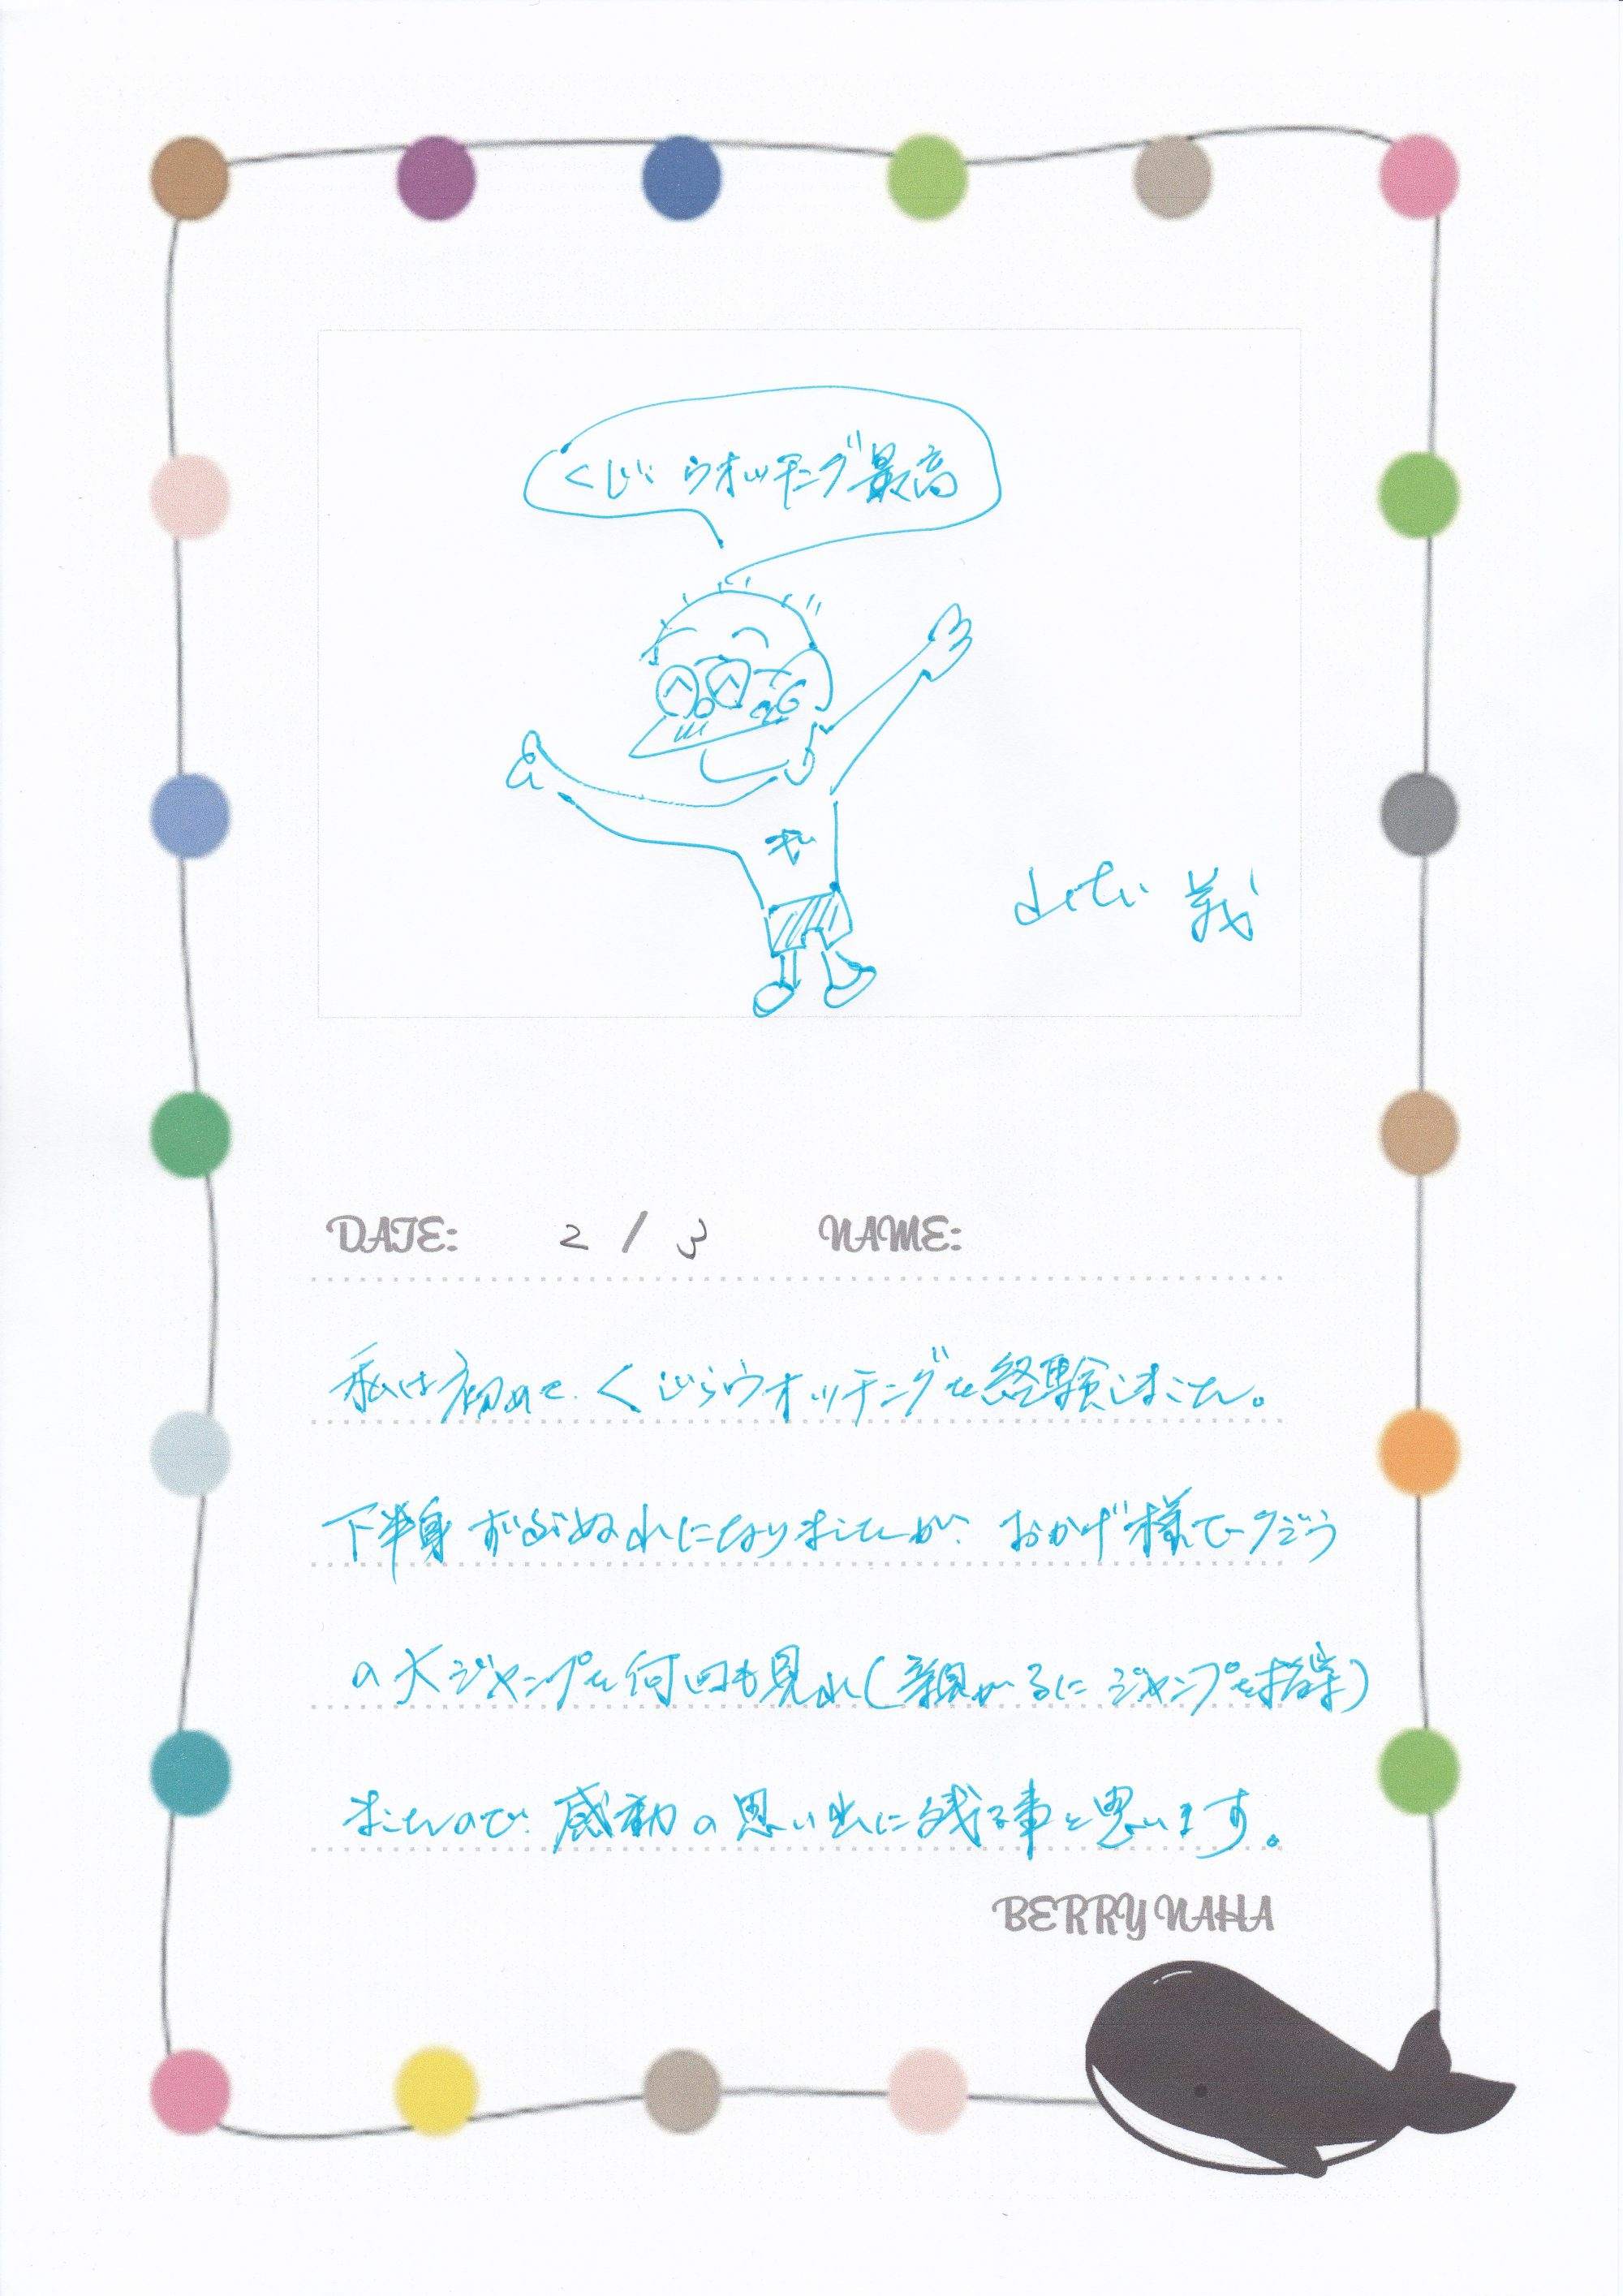 くじらウオッチング最高
DATE: 2 / 3 NAME:
私は初めて、くじらウオッチングを経験しました。
下半身ずぶぬれになりましたが、おかげ様でクジラ
の大ジャンプを何回も見れ(親がるにジャンプを指導)
ましたので、感動の思い出に残る事と思います。
BERRY NAHA